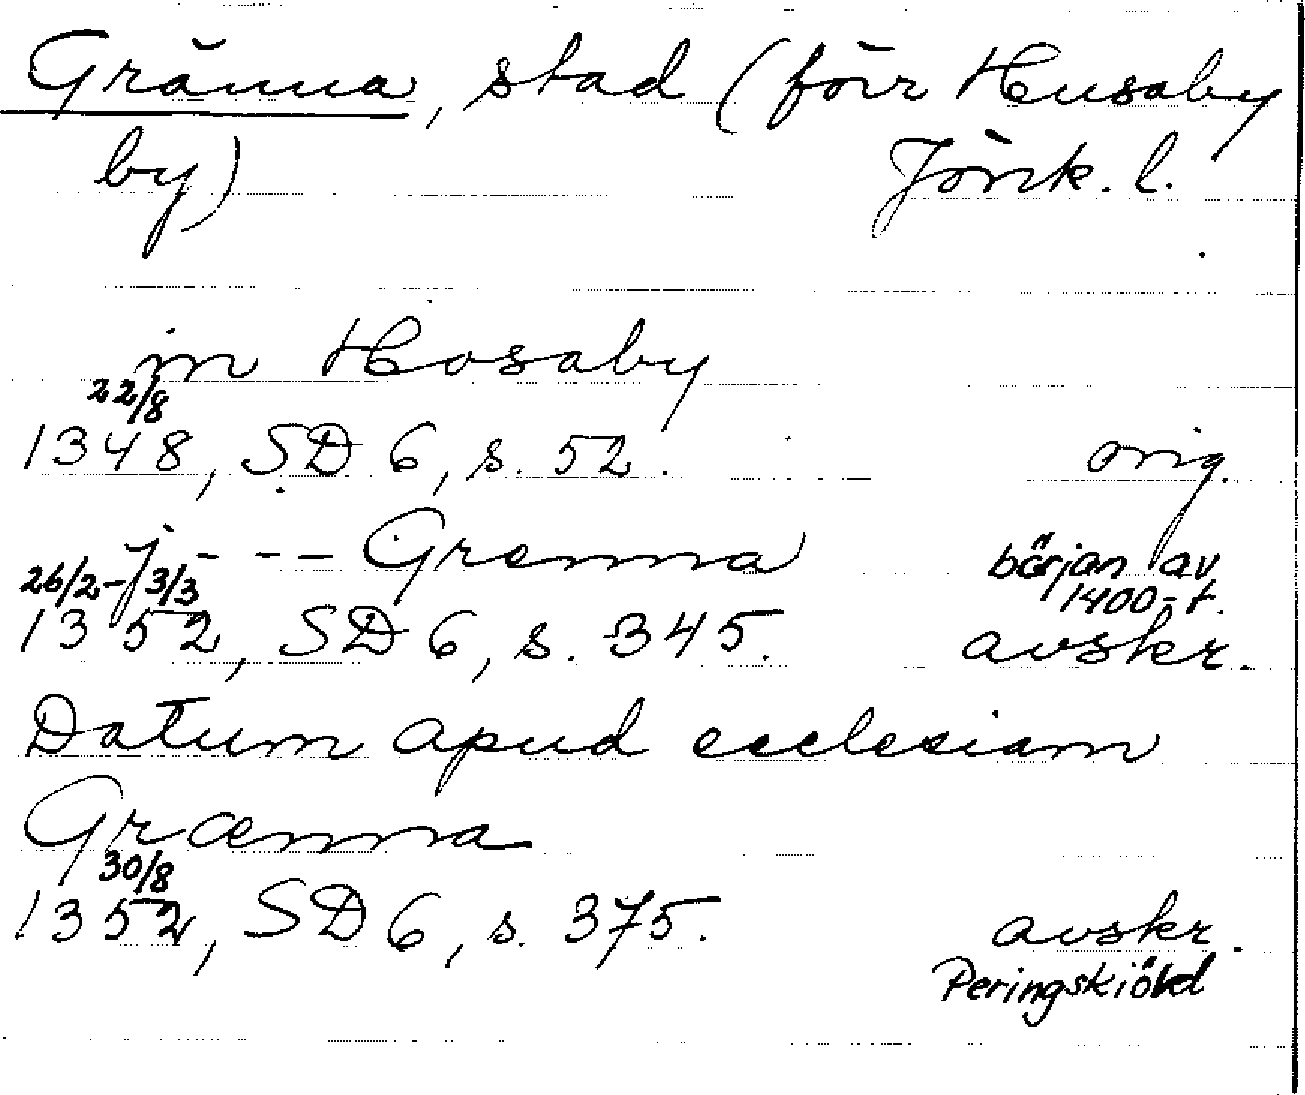 Gränna, stad (förr Husaby
by) Jönk. l.
in Hosaby
22/8
1348, SD 6, s. 52. orig.
j - - - Grenna början av
26/2-3/3 1400-t.
1352, SD 6, s. 345. avskr.
Datum apud ecclesiam
Grænna
30/8
1352, SD 6, s. 375. avskr.
Peringskiöld